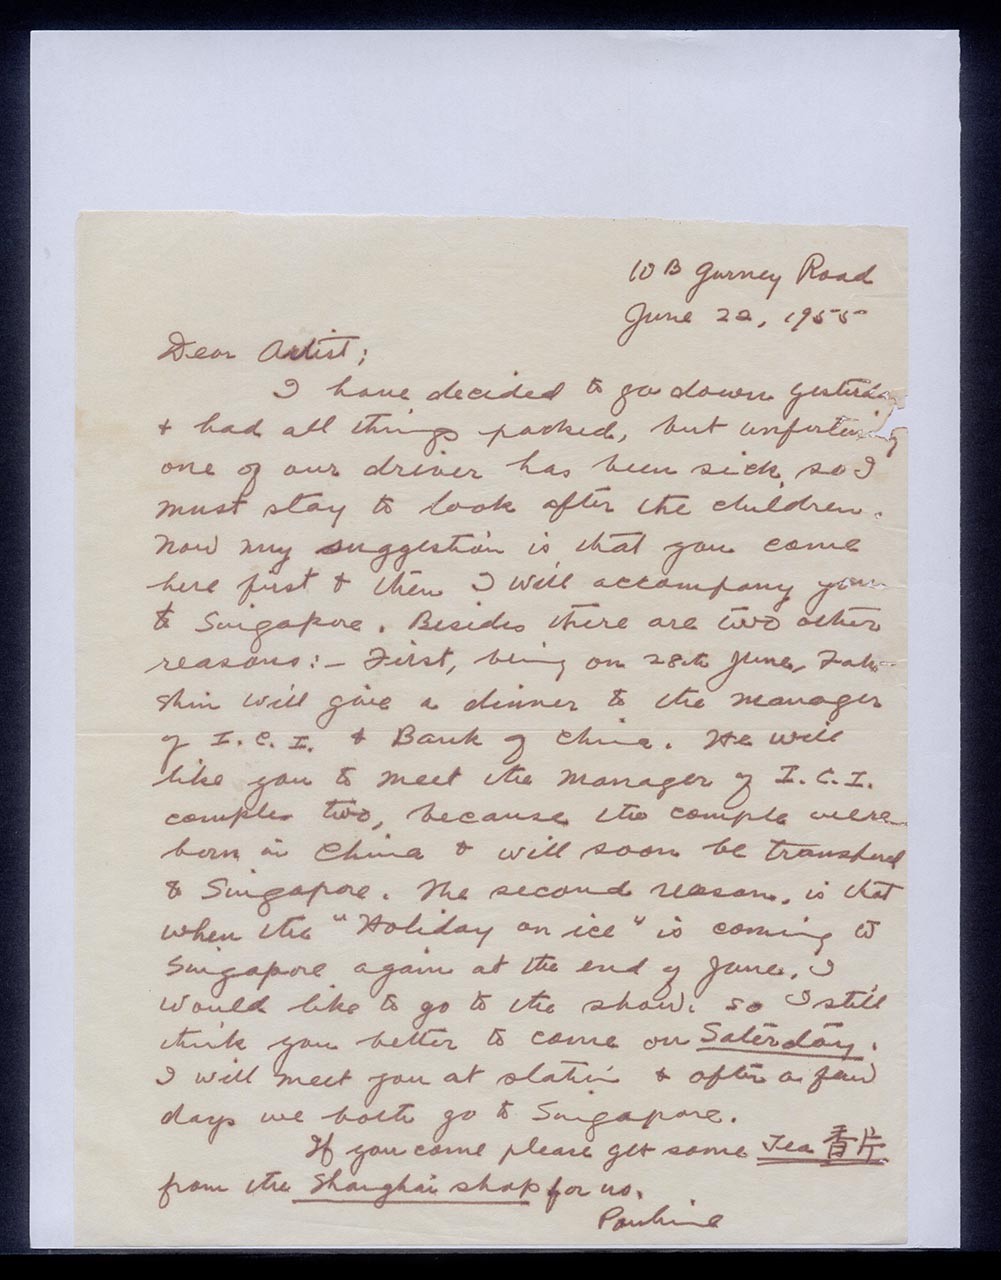 10 B Gurney Road
June 22, 1955
Dear Artist;
I have decided to go down yesterday
& had all things packed, but
one of our driver has been sick, so I
must stay to look after the children.
Now my suggestion is that you come
here first & then I will accompany you
to Singapore. Besides there are two other
reasons:- First, being on 28th June,
Shin will give a dinner to the manager
of I.C.I. & Bank of China. He will
like you to meet the manager of I.C.I.
couple two, because the couple were
born in China & will soon be
to Singapore. The second reason, is that
when the "Holiday on ice" is coming to
Singapore again at the end of June, I
would like to go to the show. So I still
think you better to come on Saterday.
I will meet you at station & after a few
days we both go to Singapore.
If you come please get some Tea 香片
from the Shanghai shop for us.
Pauline